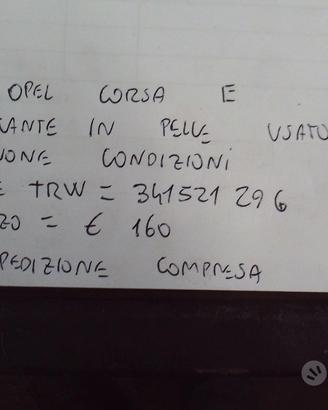 OPEL CORSA E
CANTE IN PELLE USATO
ONE CONDIZIONI
E TRW = 341521296
ZO = € 160
PEDIZIONE COMPRESA